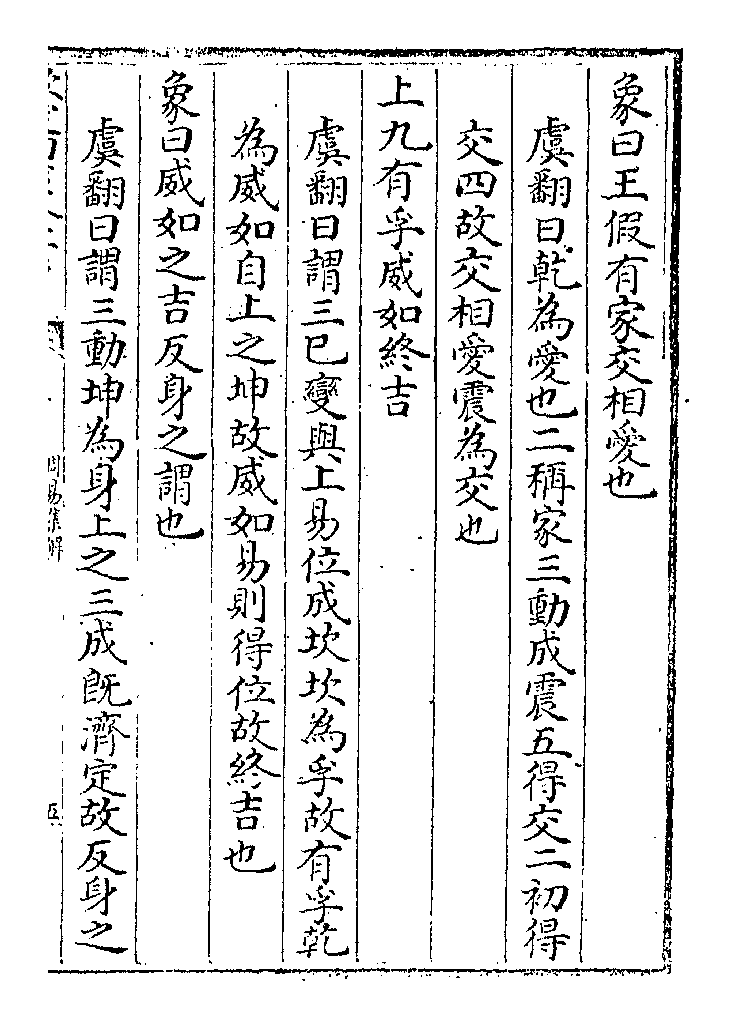 象曰王假有家交相愛也
虞翻曰乾為愛也二稱家三動成震五得交二初得
交四故交相愛震為交也
上九有孚威如終吉
虞翻曰謂三已變與上易位成坎坎為孚故有孚乾
為威如自上之坤故威如易則得位故終吉也
象曰威如之吉反身之謂也
虞翻曰謂三動坤為身上之三成既濟定故反身之
周易集解
五